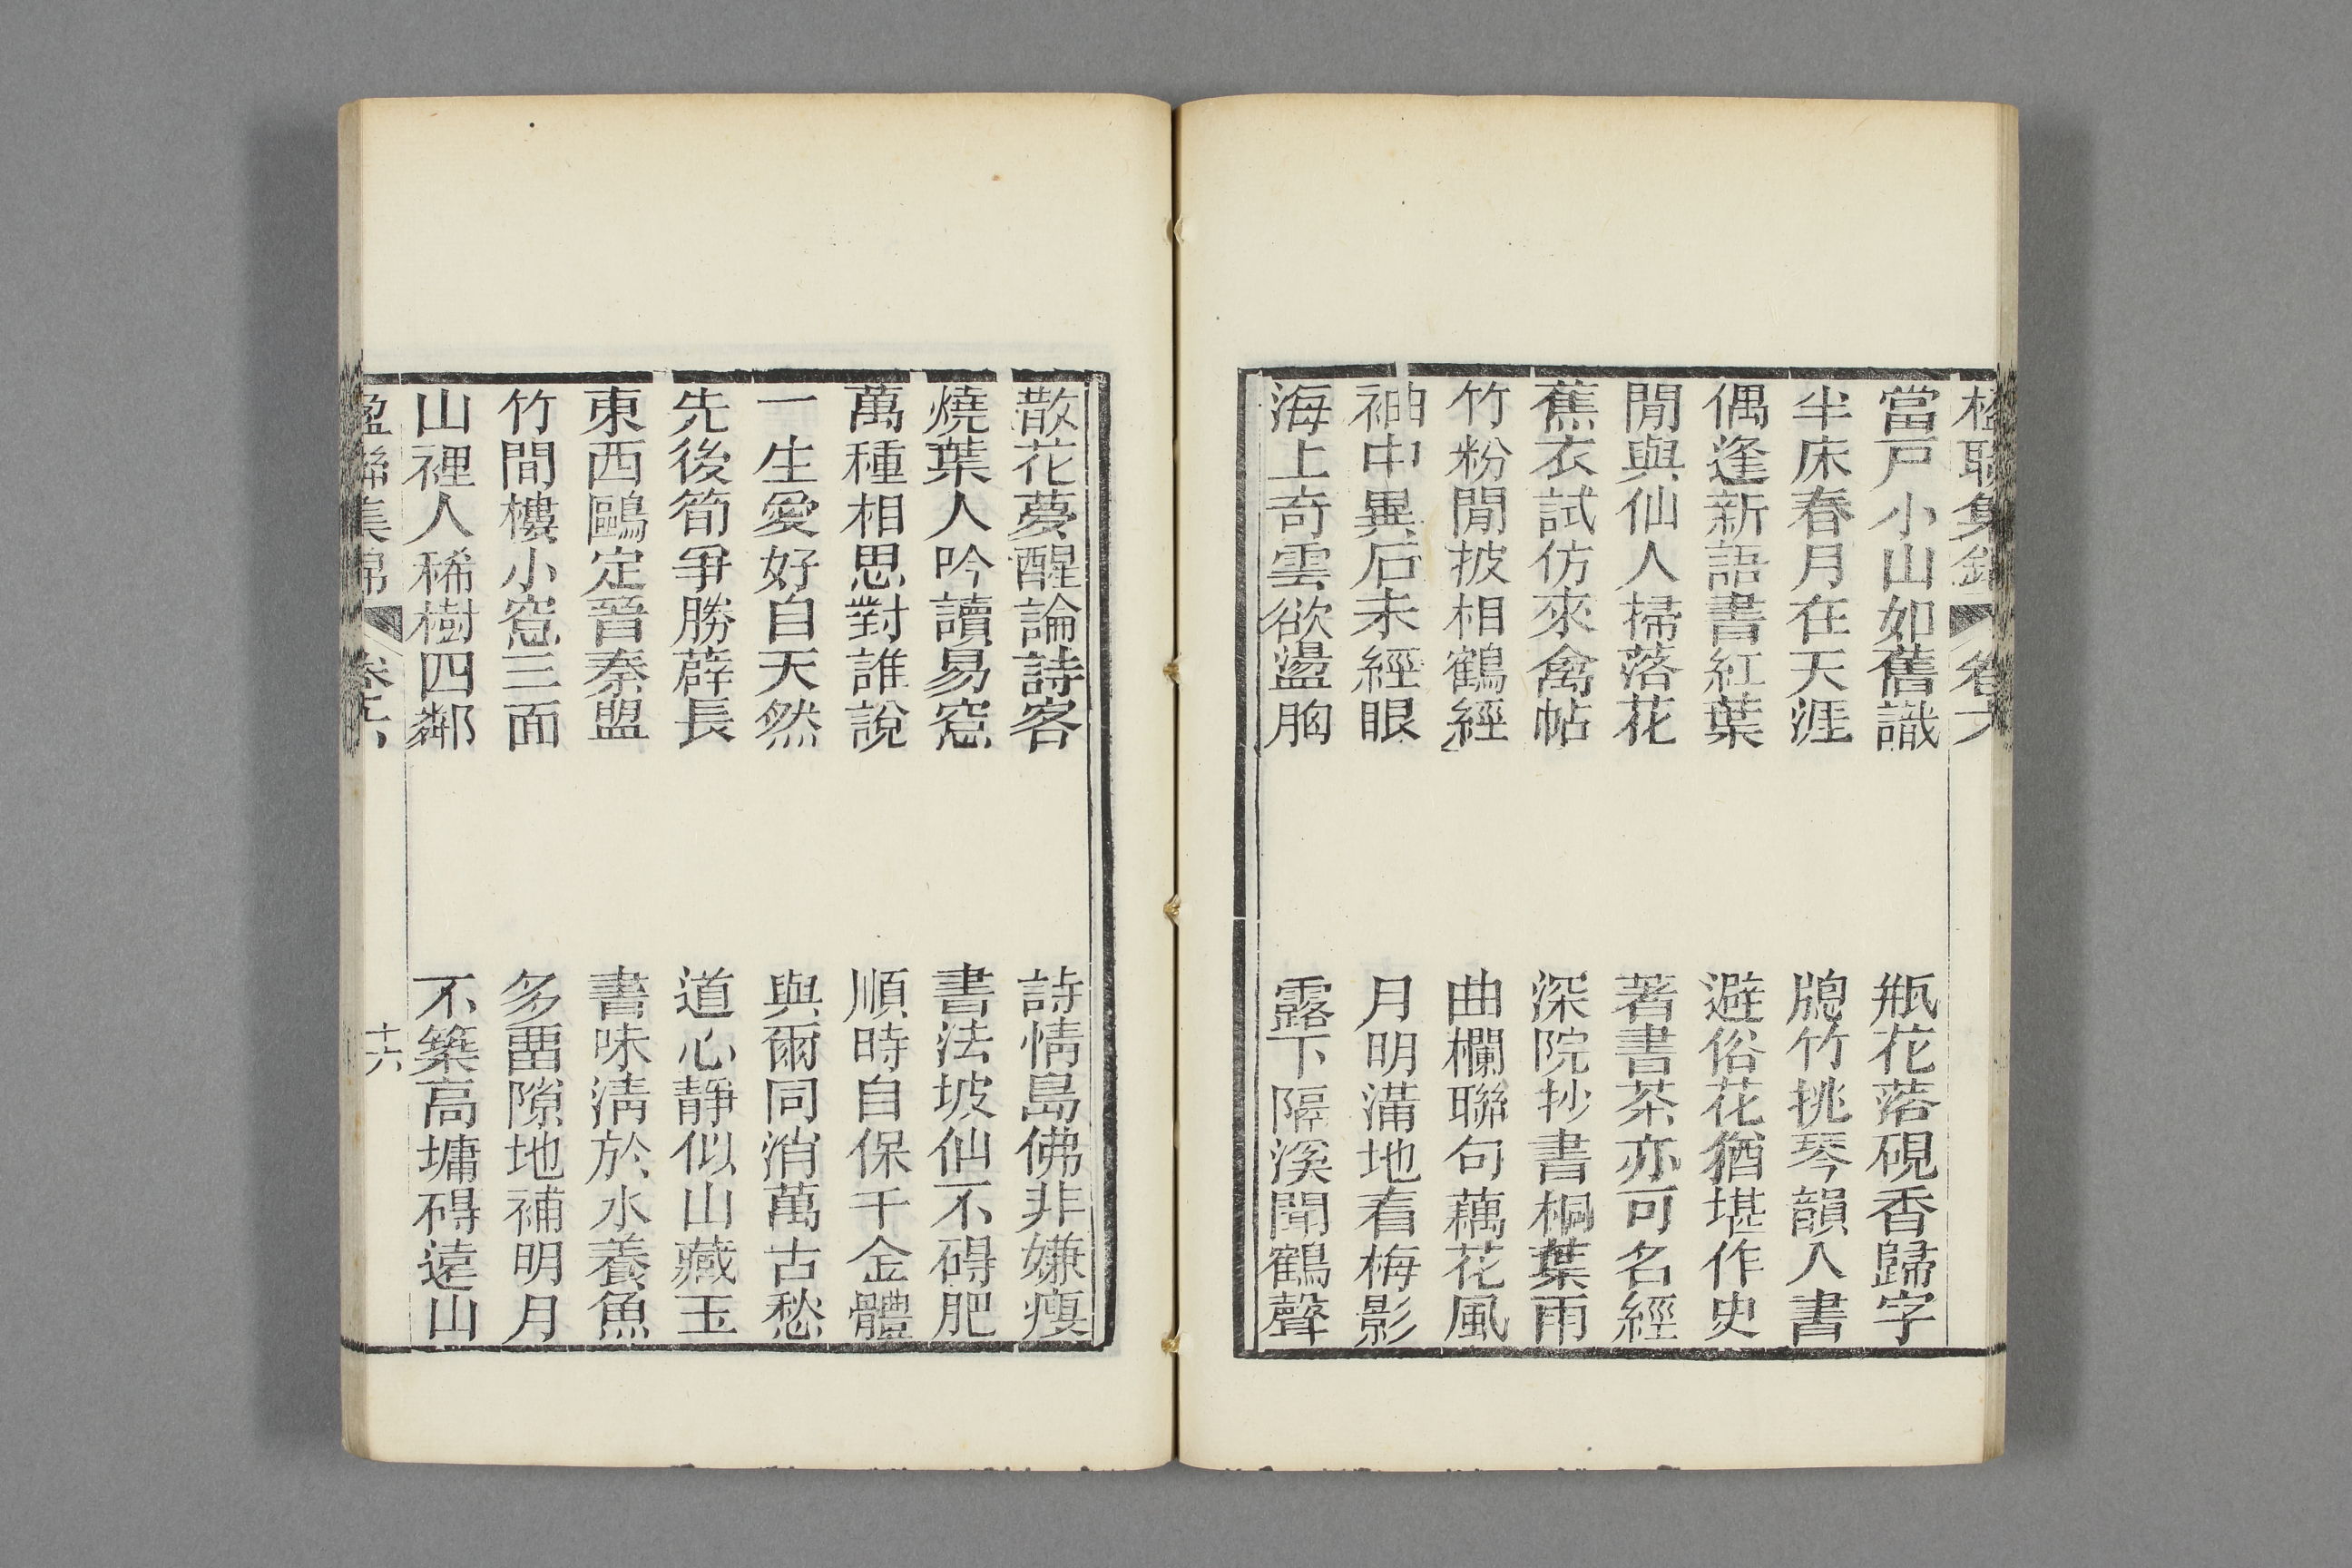 楹聯集錦 卷六
當戸小山如舊識 瓶花落硯香歸字
半床春月在天涯 牕竹挑琴韻入書
偶逢新語書紅葉 避俗花猶堪作史
閒與仙人掃落花 著書茶亦可名經
蕉衣試仿來禽帖 深院抄書桐葉雨
竹粉閒披相鶴經 曲欄聯句藕花風
袖中異石未經眼 月明滿地看梅影
海上奇雲欲盪胸 露下隔溪聞鶴聲
散花夢醒論詩客 詩情島佛非嫌瘦
燒葉人吟讀易窓 書法坡仙不碍肥
萬種相思對誰說 順時自保千金體
一生愛好自天然 與爾同消萬古愁
先後筍爭勝薛長 道心靜似山藏玉
東西鷗定晉秦盟 書味清於水養魚
竹間樓小窓三面 多畱隙地補明月
山裡人稀樹四鄰 不築高墉碍遠山
楹聯集錦 卷六 十六